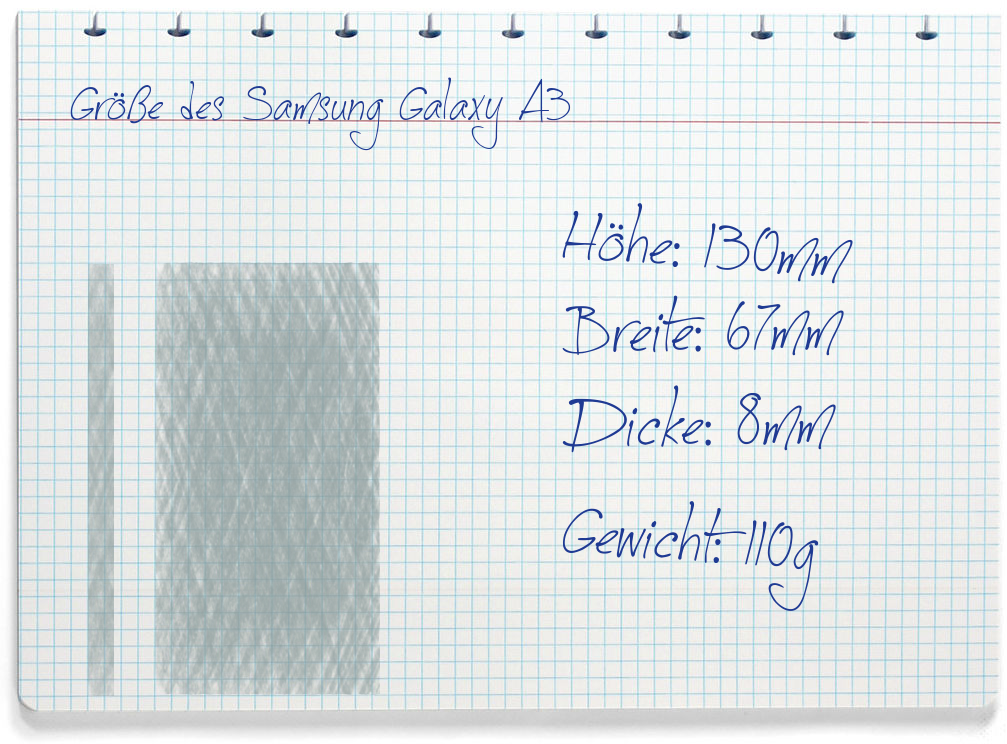 Größe des Samsung Galaxy A3
Höhe: 130mm
Breite: 67mm
Dicke: 8mm
Gewicht: 110g